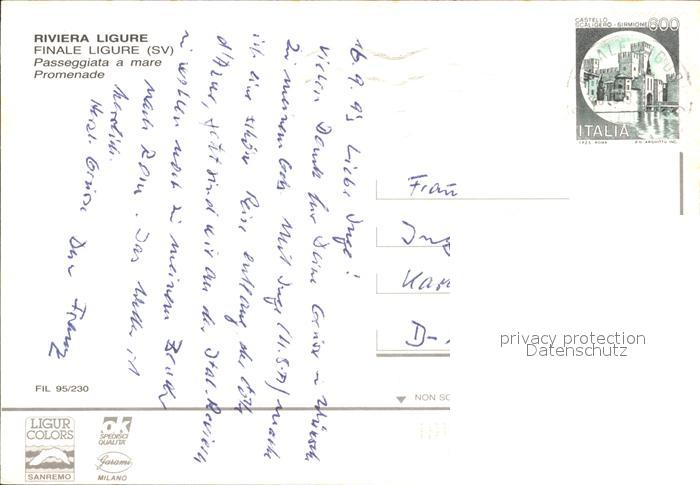 RIVIERA LIGURE
FINALE LIGURE (SV)
Passeggiata a mare
Promenade
CASTELLO
SCALIGERO - SIRMIONE 600
ITALIA
16.9.95 Liebe Inge!
Vielen Dank für Deine Grüsse u Wünsche
zu meinem Geb. Mit Inge
ich eine schöne Reise entlang der Côte
d'Azur, jetzt sind wir an der Ital. Riviera
u wollen noch zu meinem Bruder
nach Rom. Das Wetter ist
herrlich.
Herzl. Grüsse Dein Franz
Frau
D-
privacy protection
Datenschutz
FIL 95/230
NON SC
LIGUR
COLORS
SANREMO
ok
SPEDISCI
QUALITA'
Garami
MILANO